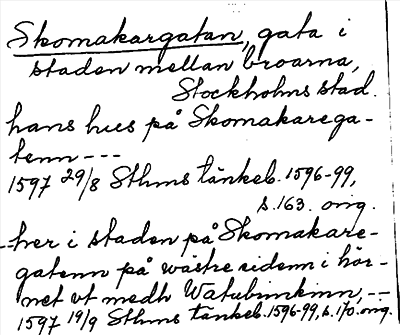 Skomakargatan, gata i
staden mellan broarna,
Stockholms stad.
hans hus på Skomakarega-
tenn ---
1597 29/8 Sthms tänkeb. 1596-99,
s. 163. orig.
--her i staden på Skomakare-
gatenn på wästre sidenn i hör-
net vt medh Watubrinkinn, --
1597 19/9 Sthms tänkeb. 1596-99, s. 170. orig.